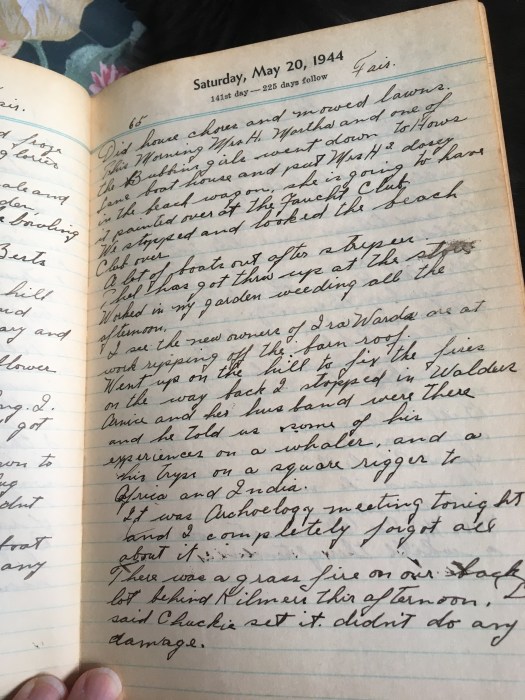 is.
d froze
glories
als and
der,
e bowling
Berts
hill
nd
ary and
flower
ng. I.
got
wn to
ng
dnt
boat
any
Saturday, May 20, 1944
Fair.
141st day—225 days follow
65
Did house chores and mowed lawns.
This Morning Mrs H. Martha and one of
the Bubbing girls went down to Hows
Lane boat house and put Mrs H's
in the beach wagon, she is going to have
it painted over at the Yaucht Club.
We stopped and looked the beach
Club over.
A lot of boats out after stripers.
Chet has got thru up at the
Worked in my garden weeding all the
afternoon.
I see the new owners of Ira Wards are at
work ripping off the barn roof.
Went up on the hill to fix the fires
on the way back I stopped in Waldens
Annie and her husband were there
and he told us some of his
experiences on a whaler, and a
his trips on a square rigger to
Africa and India.
It was Archoelogy meeting tonight
and I completely forgot all
about it.
There was a grass fire on our back
lot behind Kilmers this afternoon.
said Chuckie set it. didn't do any
damage.